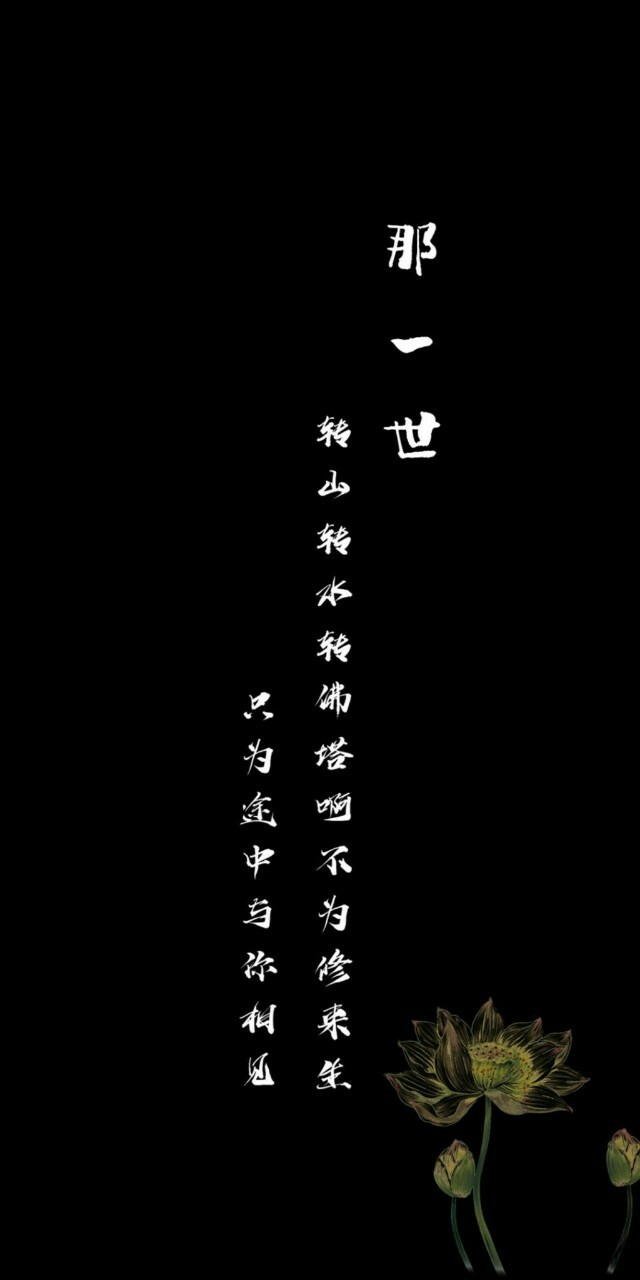 那一世
转山转水转佛塔啊不为修来生
只为途中与你相见